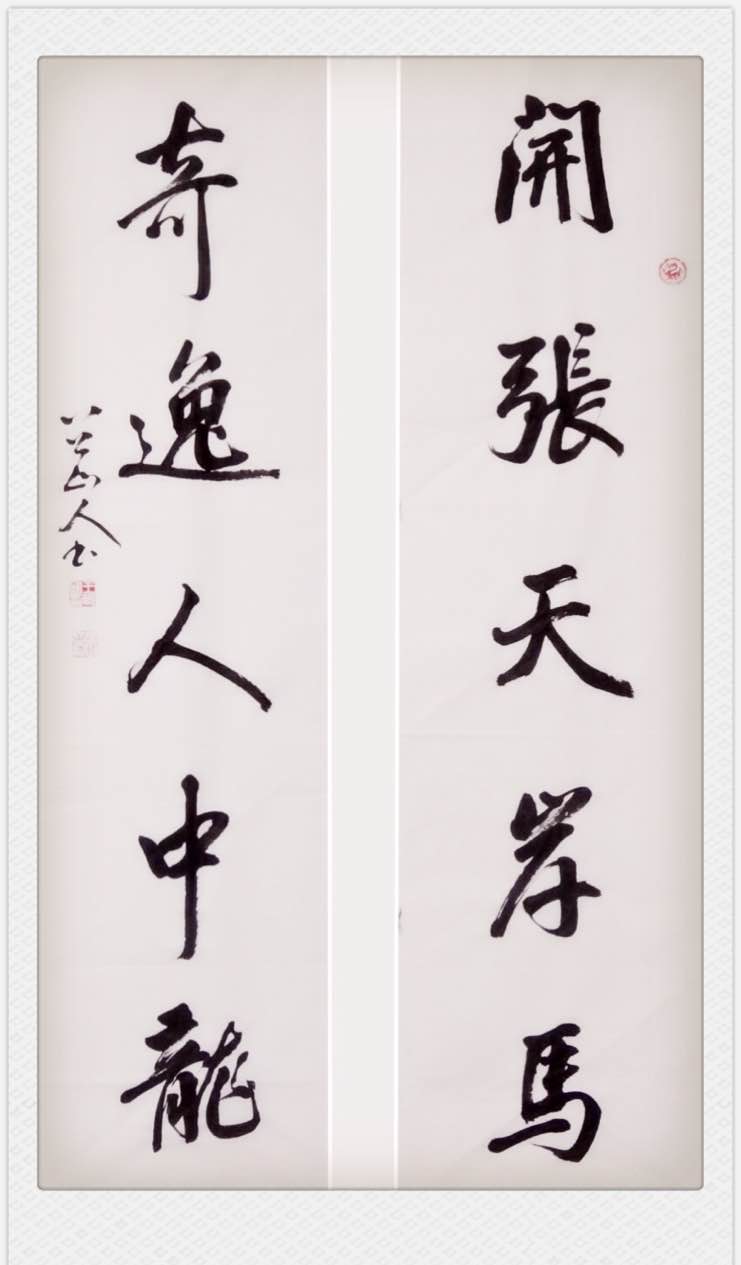 開張天岸馬
奇逸人中龍
八公山人书